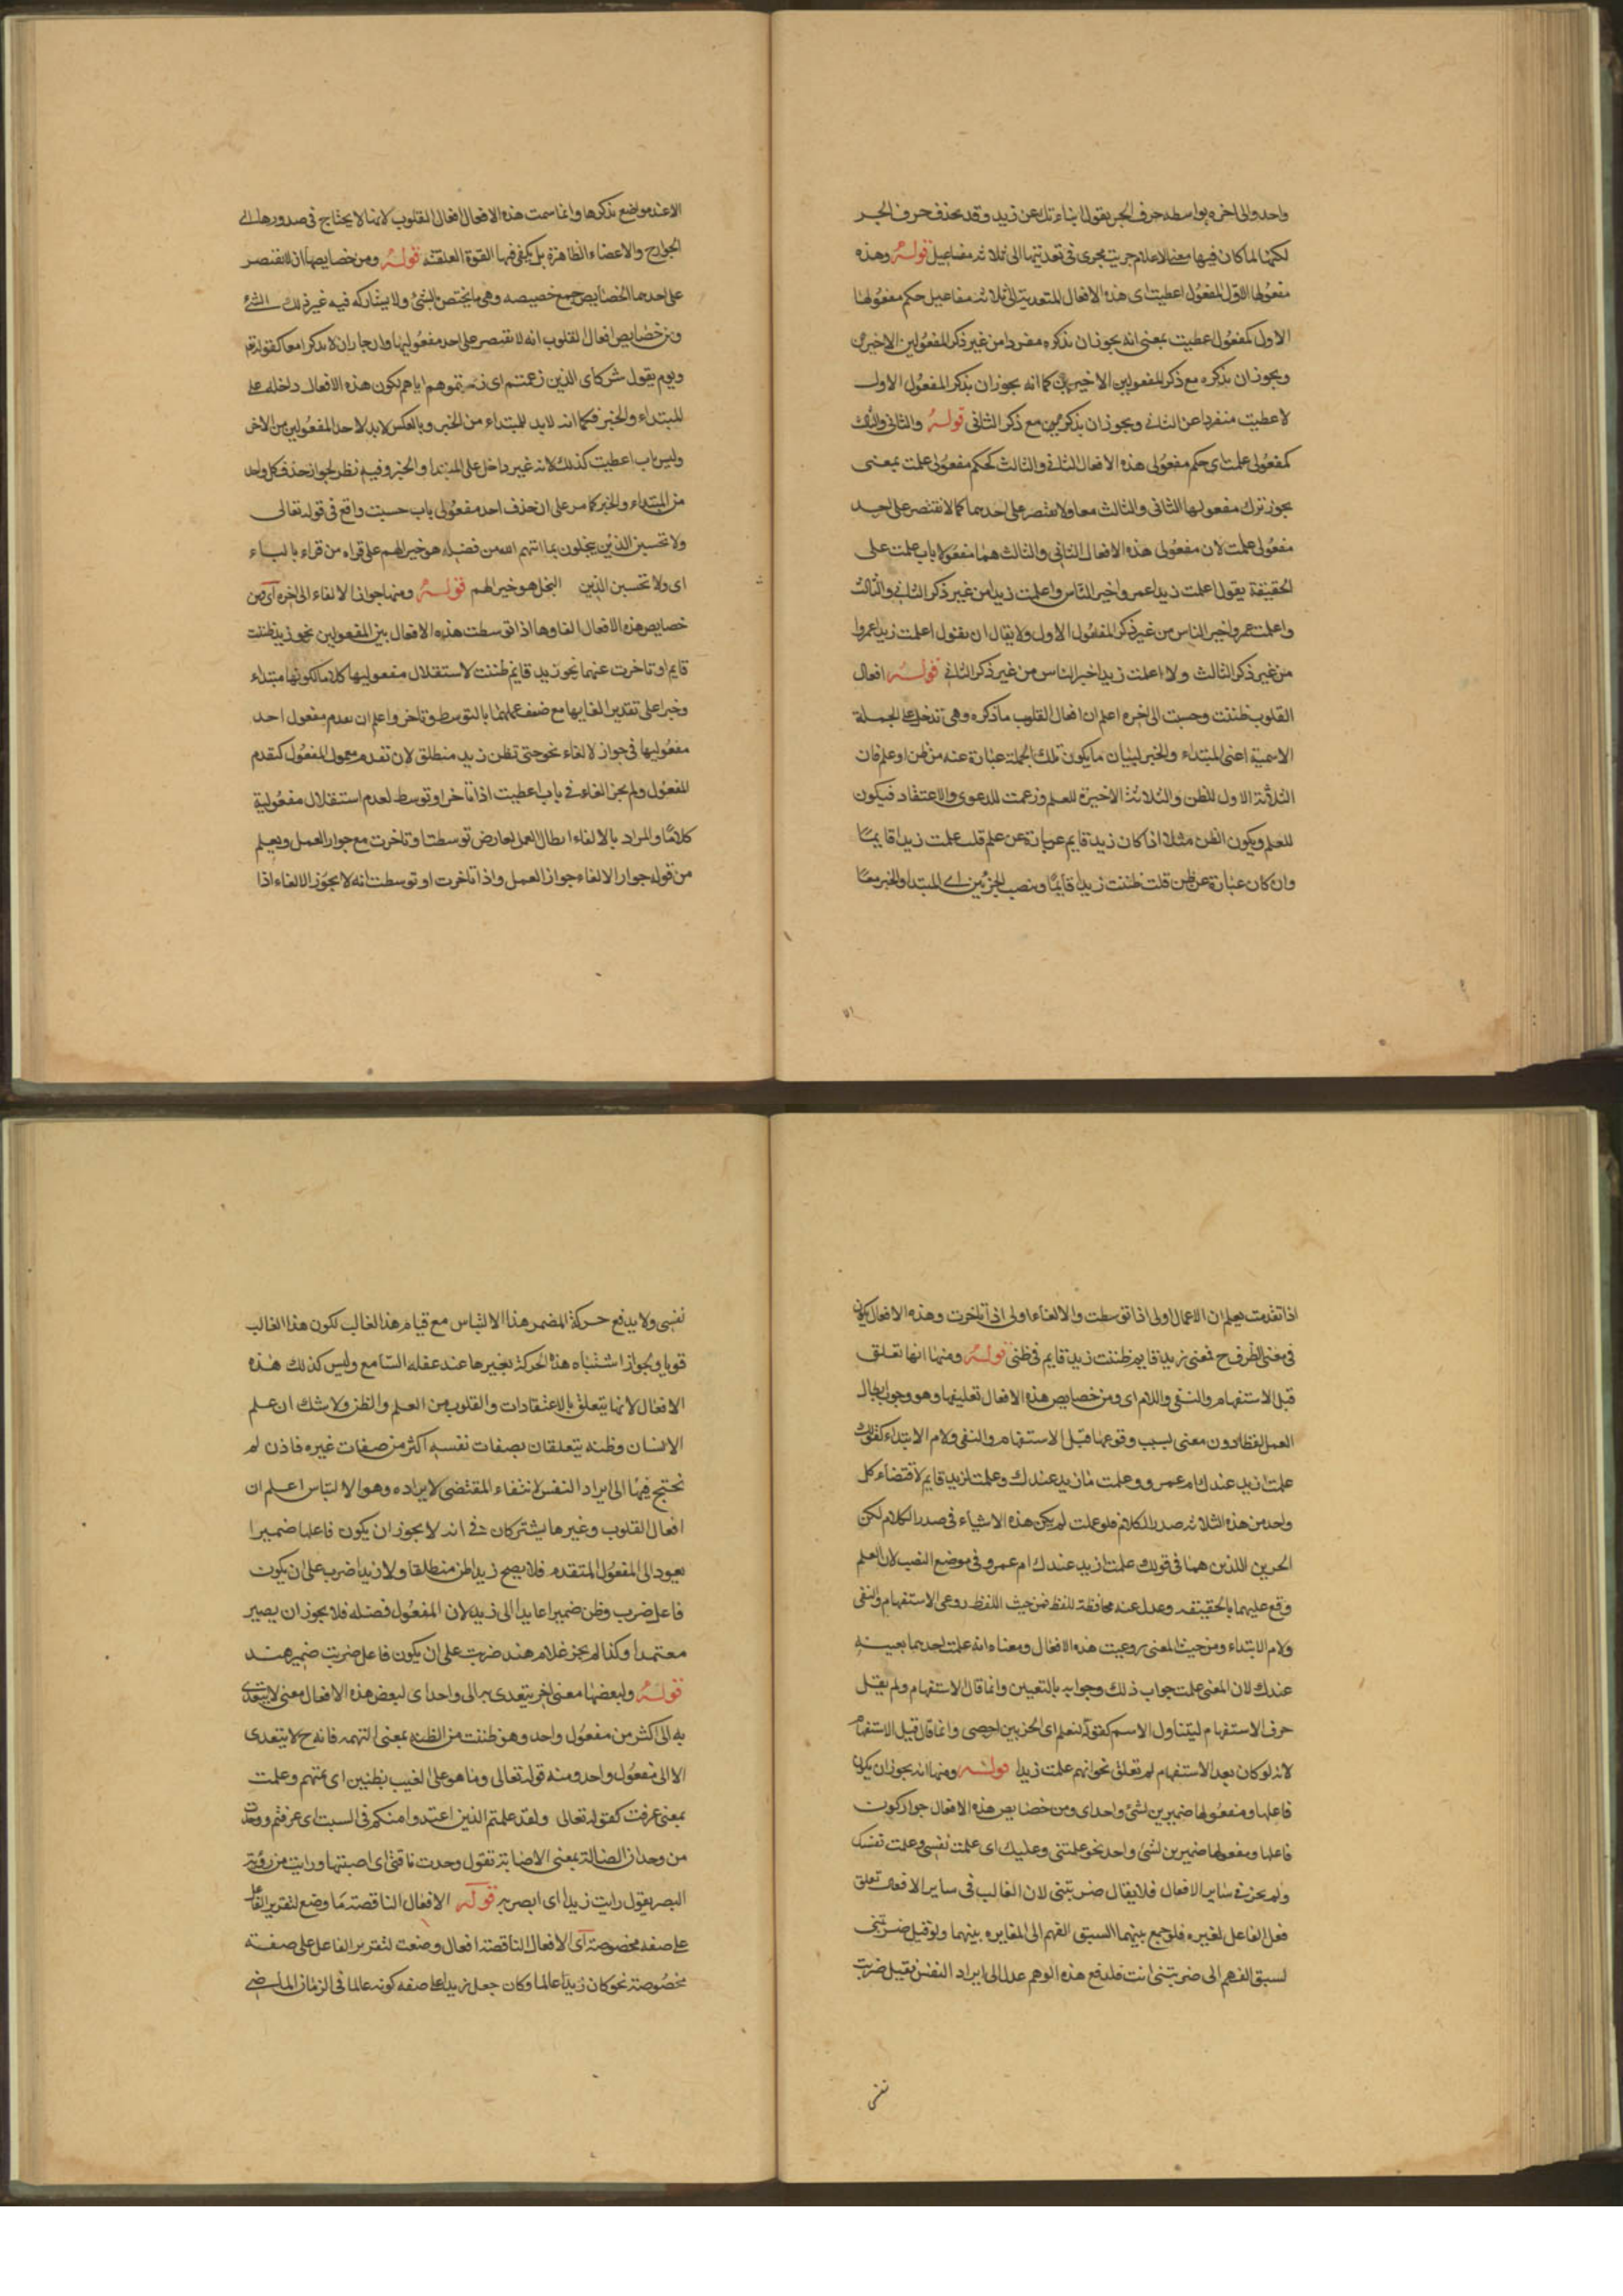 واحد والى اخره بواسطه حرف الجر يقول انباءتك عن زيد وقد يحذف حرف الجر
لكنها لما كان فيها معنى الاعلام جريت مجرى في تعديتها الى ثلاثه مفاعيل قوله وهذه
مفعولها الاول كمفعول اعطيت اى هذه الافعال المتعدية الى ثلاثه مفاعيل حكم مفعولها
الاول كمفعول اعطيت بمعنى انه يجوز ان يذكره مفردا من غير ذكر المفعولين الاخيرين
ويجوز ان يذكره مع ذكر المفعولين الاخيرين كما انه يجوز ان يذكر المفعول الاول
لاعطيت منفردا عن الثاني ويجوز ان يذكر مع ذكر الثاني قوله والثاني والثالث
كمفعولى علمت اى حكم مفعولى هذه الافعال الثاني والثالث كحكم مفعولى علمت بمعنى
يجوز ترك مفعولها الثاني والثالث معا ولا يقتصر على احدهما كما لا تقتصر على احد
مفعولى علمت لان مفعولى هذه الافعال الثاني والثالث هما مفعولا باب علمت على
الحقيقة يقول اعلمت زيدا عمروا خير الناس واعلمت زيدا من غير ذكر الثاني والثالث
واعلمت عمروا خير الناس من غير ذكر المفعول الاول ولا يقال ان يقول اعلمت زيدا عمروا
من غير ذكر الثالث ولا اعلمت زيدا خير الناس من غير ذكر الثاني قوله افعال
القلوب ظننت وحسبت الى اخره اعلم ان افعال القلوب ما ذكره وهي تدخل على الجملة
الاسمية اعنى المبتداء والخبر لبيان ما يكون تلك الجملة عبارة عنه من ظن او علم فان
الثلثة الاول للظن والثلاثة الاخيرة للعلم وزعمت للدعوى والاعتقاد فيكون
للعلم ويكون الظن مثلا اذا كان زيد قايم عبارة عن علم قلت علمت زيدا قايما
وان كان عبارة عن ظن قلت ظننت زيدا قايما وينصب الجزئين اى المبتدا والخبر معا
الا عند مواضع نذكرها وانما سمت هذه الافعال افعال القلوب لانها لا يحتاج في صدورها الى
الجوارح والاعضاء الظاهرة بل يكفى فيها القوة العقلية قوله ومن خصايصها ان لا تقتصر
على احدهما الخصايص جمع خصيصه وهي ما يختص بالشئ ولا يشاركه فيه غير ذلك الشئ
ومن خصايص افعال القلوب انه لا تقتصر على احد مفعوليها وان جاز ان لا يذكرا معا كقوله تع
ويوم يقول شركاى الذين زعمتم اى زعمتموهم اياهم لكون هذه الافعال داخله على
المبتداء والخبر فكما انه لا بد للمبتداء من الخبر وبالعكس لا بد لاحد المفعولين من الاخر
وليس باب اعطيت كذلك لانه غير داخل على المبتدا والخبر وفيه نظر لجواز حذف كل واحد
من المبتداء والخبر كما مر على ان حذف احد مفعولى باب حسبت واقع في قوله تعالى
ولا تحسبن الذين يبخلون بما اتيهم الله من فضله هو خير لهم على قراه من قراء بالياء
اى ولا تحسبن الذين البخل هو خير الهم قوله ومنها جواز الالغاء الى اخره اى من
خصايص هذه الافعال الغاوها اذا توسطت هذه الافعال بين المفعولين نحو زيد ظننت
قايم او تاخرت عنهما نحو زيد قايم ظننت لاستقلال مفعوليها كلاما لكونها مبتداء
وخبرا على تقدير الغايها مع ضعف عملها بالتوسط وتاخر واعلم ان تقدم مفعول احد
مفعوليها في جواز الالغاء نحو حتى تظن زيد منطلق لان تقدم معمول المفعول كتقدم
المفعول ولم يجز الغاء في باب اعطيت اذا تاخر او توسط لعدم استقلال مفعوليه
كلاما والمراد بالالغاء ابطال العمل لعارض توسطت او تاخرت مع جواز العمل ويعلم
من قوله جواز الالغاء جواز العمل واذا تاخرت او توسطت انه لا يجوز الالغاء اذا
اذا تقدمت يعلم ان الاعمال اولى اذا توسطت والالغاء اولى اذا تاخرت وهذه الافعال يكون
في معنى الظرف ح فمعنى زيدا قايم ظننت زيد قايم في ظنى قوله ومنها انها تعلق
قبل الاستفهام والنفى واللام اى ومن خصايص هذه الافعال تعليقها وهو وجوب ابطال
العمل لفظا دون معنى لسبب وقوعها قبل الاستفهام والنفى ولام الابتداء كقولك
علمت ازيد عندك ام عمرو وعلمت ما زيد عندك وعلمت لزيد قايم لاقتضاء كل
واحد من هذه الثلاثه صدر الكلام فلو علمت لم يكن هذه الاشياء في صدر الكلام لكن
الجزين اللذين هما في قولك علمت ازيد عندك ام عمرو في موضع النصب لان العلم
وقع عليهما بالحقيقه وعدل عنه محافظة للفظ فمن حيث اللفظ روعى الاستفهام والنفى
ولام الابتداء ومن حيث المعنى روعيت هذه الافعال ومعناه انه علمت احدهما بعينه
عندك لان المعنى علمت جواب ذلك وجوابه بالتعيين وانما قال الاستفهام ولم يقل
حرف الاستفهام ليتناول الاسم كقوله لنعلم اى الحزبين احصى وانما قال قبل الاستفهام
لانه لو كان بعد الاستفهام لم تعلق نحو ايهم علمت زيدا قوله ومنها انه يجوز ان يكون
فاعلها ومفعولها ضميرين لشئ واحد اى ومن خصايص هذه الافعال جواز كون
فاعلها ومفعولها ضميرين لشئ واحد نحو علمتنى وعليك اى علمت نفسى وعلمت نفسك
ولم يجز في ساير الافعال فلا يقال ضربتنى لان الغالب في ساير الافعال تعلق
فعل الفاعل لغيره فلو جمع بينهما السبق الفهم الى المغايره بينهما ولو قيل ضربتنى
لسبق الفهم الى ضربتنى انت فلدفع هذه الوهم عدل الى ايراد النفس بقيل ضربت
نفسى
نفسى ولا يدفع حركة المضمر هذا الالتباس مع قيام هذا الغالب لكون هذا الغالب
قويا ويجواز اشتباه هذا الحركة بغيرها عند عقله السامع وليس كذلك هذه
الافعال لانها يتعلق بالاعتقادات والقلوب من العلم والظن ولا شك ان علم
الانسان وظنه يتعلقان بصفات نفسه اكثر من صفات غيره فاذن لم
نحتج فيها الى ايراد النفس لانتفاء المقتضى لايراده وهو الالتباس اعلم ان
افعال القلوب وغيرها يشتركان في انه لا يجوز ان يكون فاعلها ضميرا
يعود الى المفعول المتقدم فلا يصح زيدا ظن منطلقا ولا زيدا ضرب على ان يكون
فاعل ضرب وظن ضميرا عايدا الى زيد لان المفعول فضله فلا يجوز ان يصير
معتمدا وكذا لم يجز غلام هند ضربت على ان يكون فاعل ضربت ضمير هند
قوله ولبعضها معنى اخر يتعدى به الى واحد اى لبعض هذه الافعال معنى لا يتعدى
به الى اكثر من مفعول واحد وهو ظننت من الظنه بمعنى التهمه فانه ح لا يتعدى
الا الى مفعول واحد ومنه قوله تعالى وما هو على الغيب بظنين اى بمتهم وعلمت
بمعنى عرفت كقوله تعالى ولقد علمتم الذين اعتدوا منكم في السبت اى عرفتم ووجدت
من وجدان الضالة بمعنى الاصابة تقول وجدت ناقتى اى اصبتها ورايت من رؤية
البصر يقول رايت زيدا اى ابصر به قوله الافعال الناقصة ما وضع لتقرير الفاعل
على صفه مخصوصة اى الافعال الناقصة افعال وضعت لتقرير الفاعل على صفة
مخصوصة نحو كان زيدا عالما وكان جعل زيدا على صفه كونه عالما في الزمان الماضى